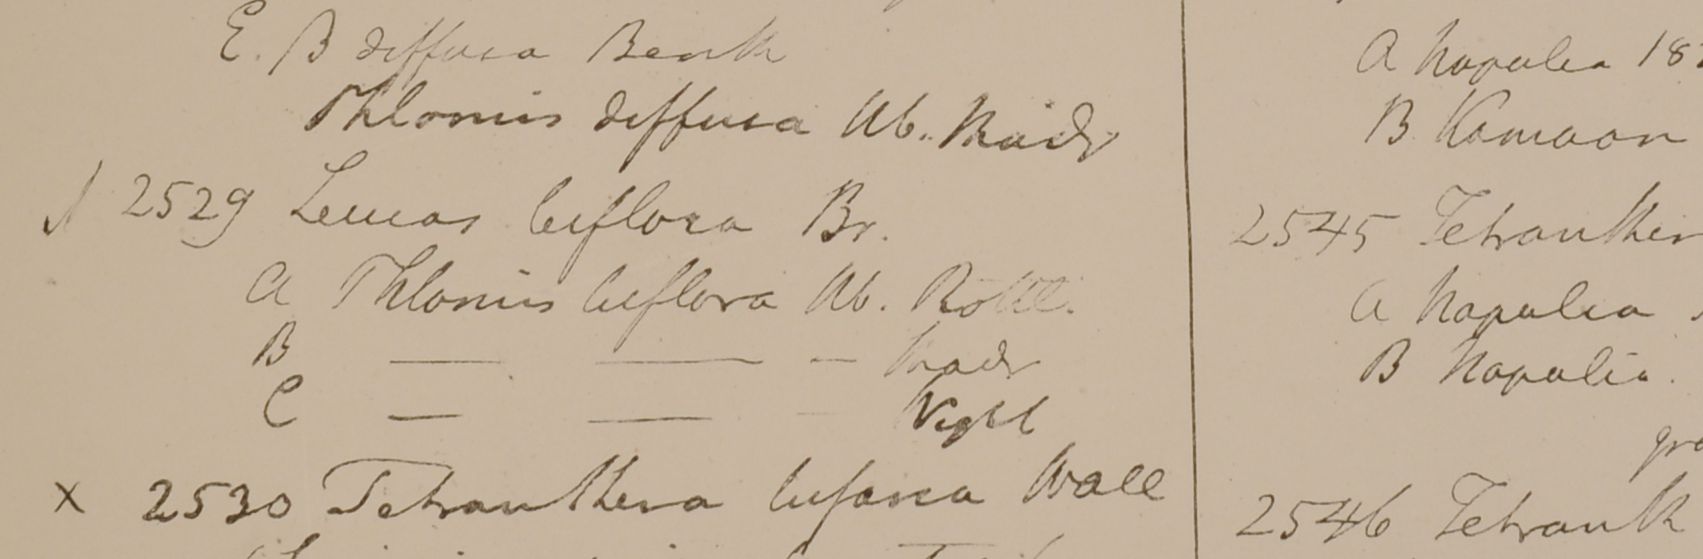 E. B diffusa Benth
Phlomis diffusa Hb. Madr
2529 Leucas biflora Br.
a Phlomis biflora Hb. Rottl.
B — — — Madr
C — — — Wight
x 2530 Tetranthera bifaria Wall
a Napalia 182
B. Kamaon
2545 Tetranther
a Napalia
B Napalia.
2546 Tetranth